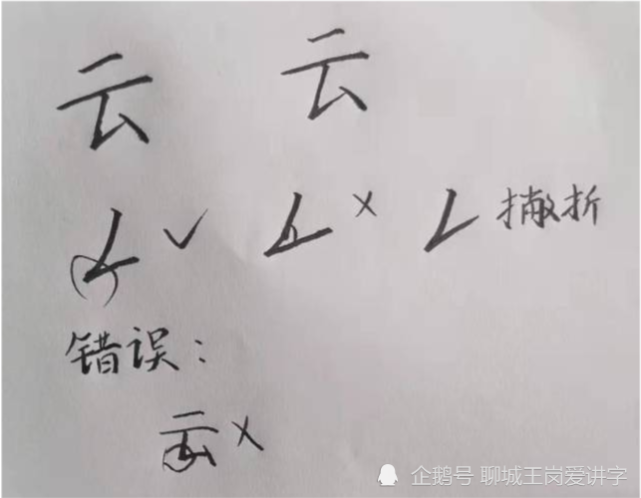 云 云
✓ × 撇折
错误：
云×
企鹅号 聊城王岗爱讲字